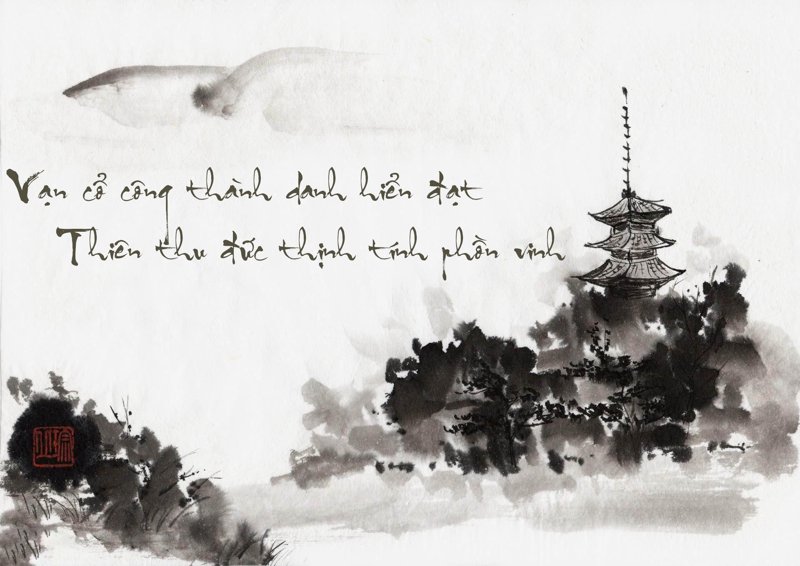 Vạn cổ công thành danh hiển đạt
Thiên thu đức thịnh tính phồn vinh